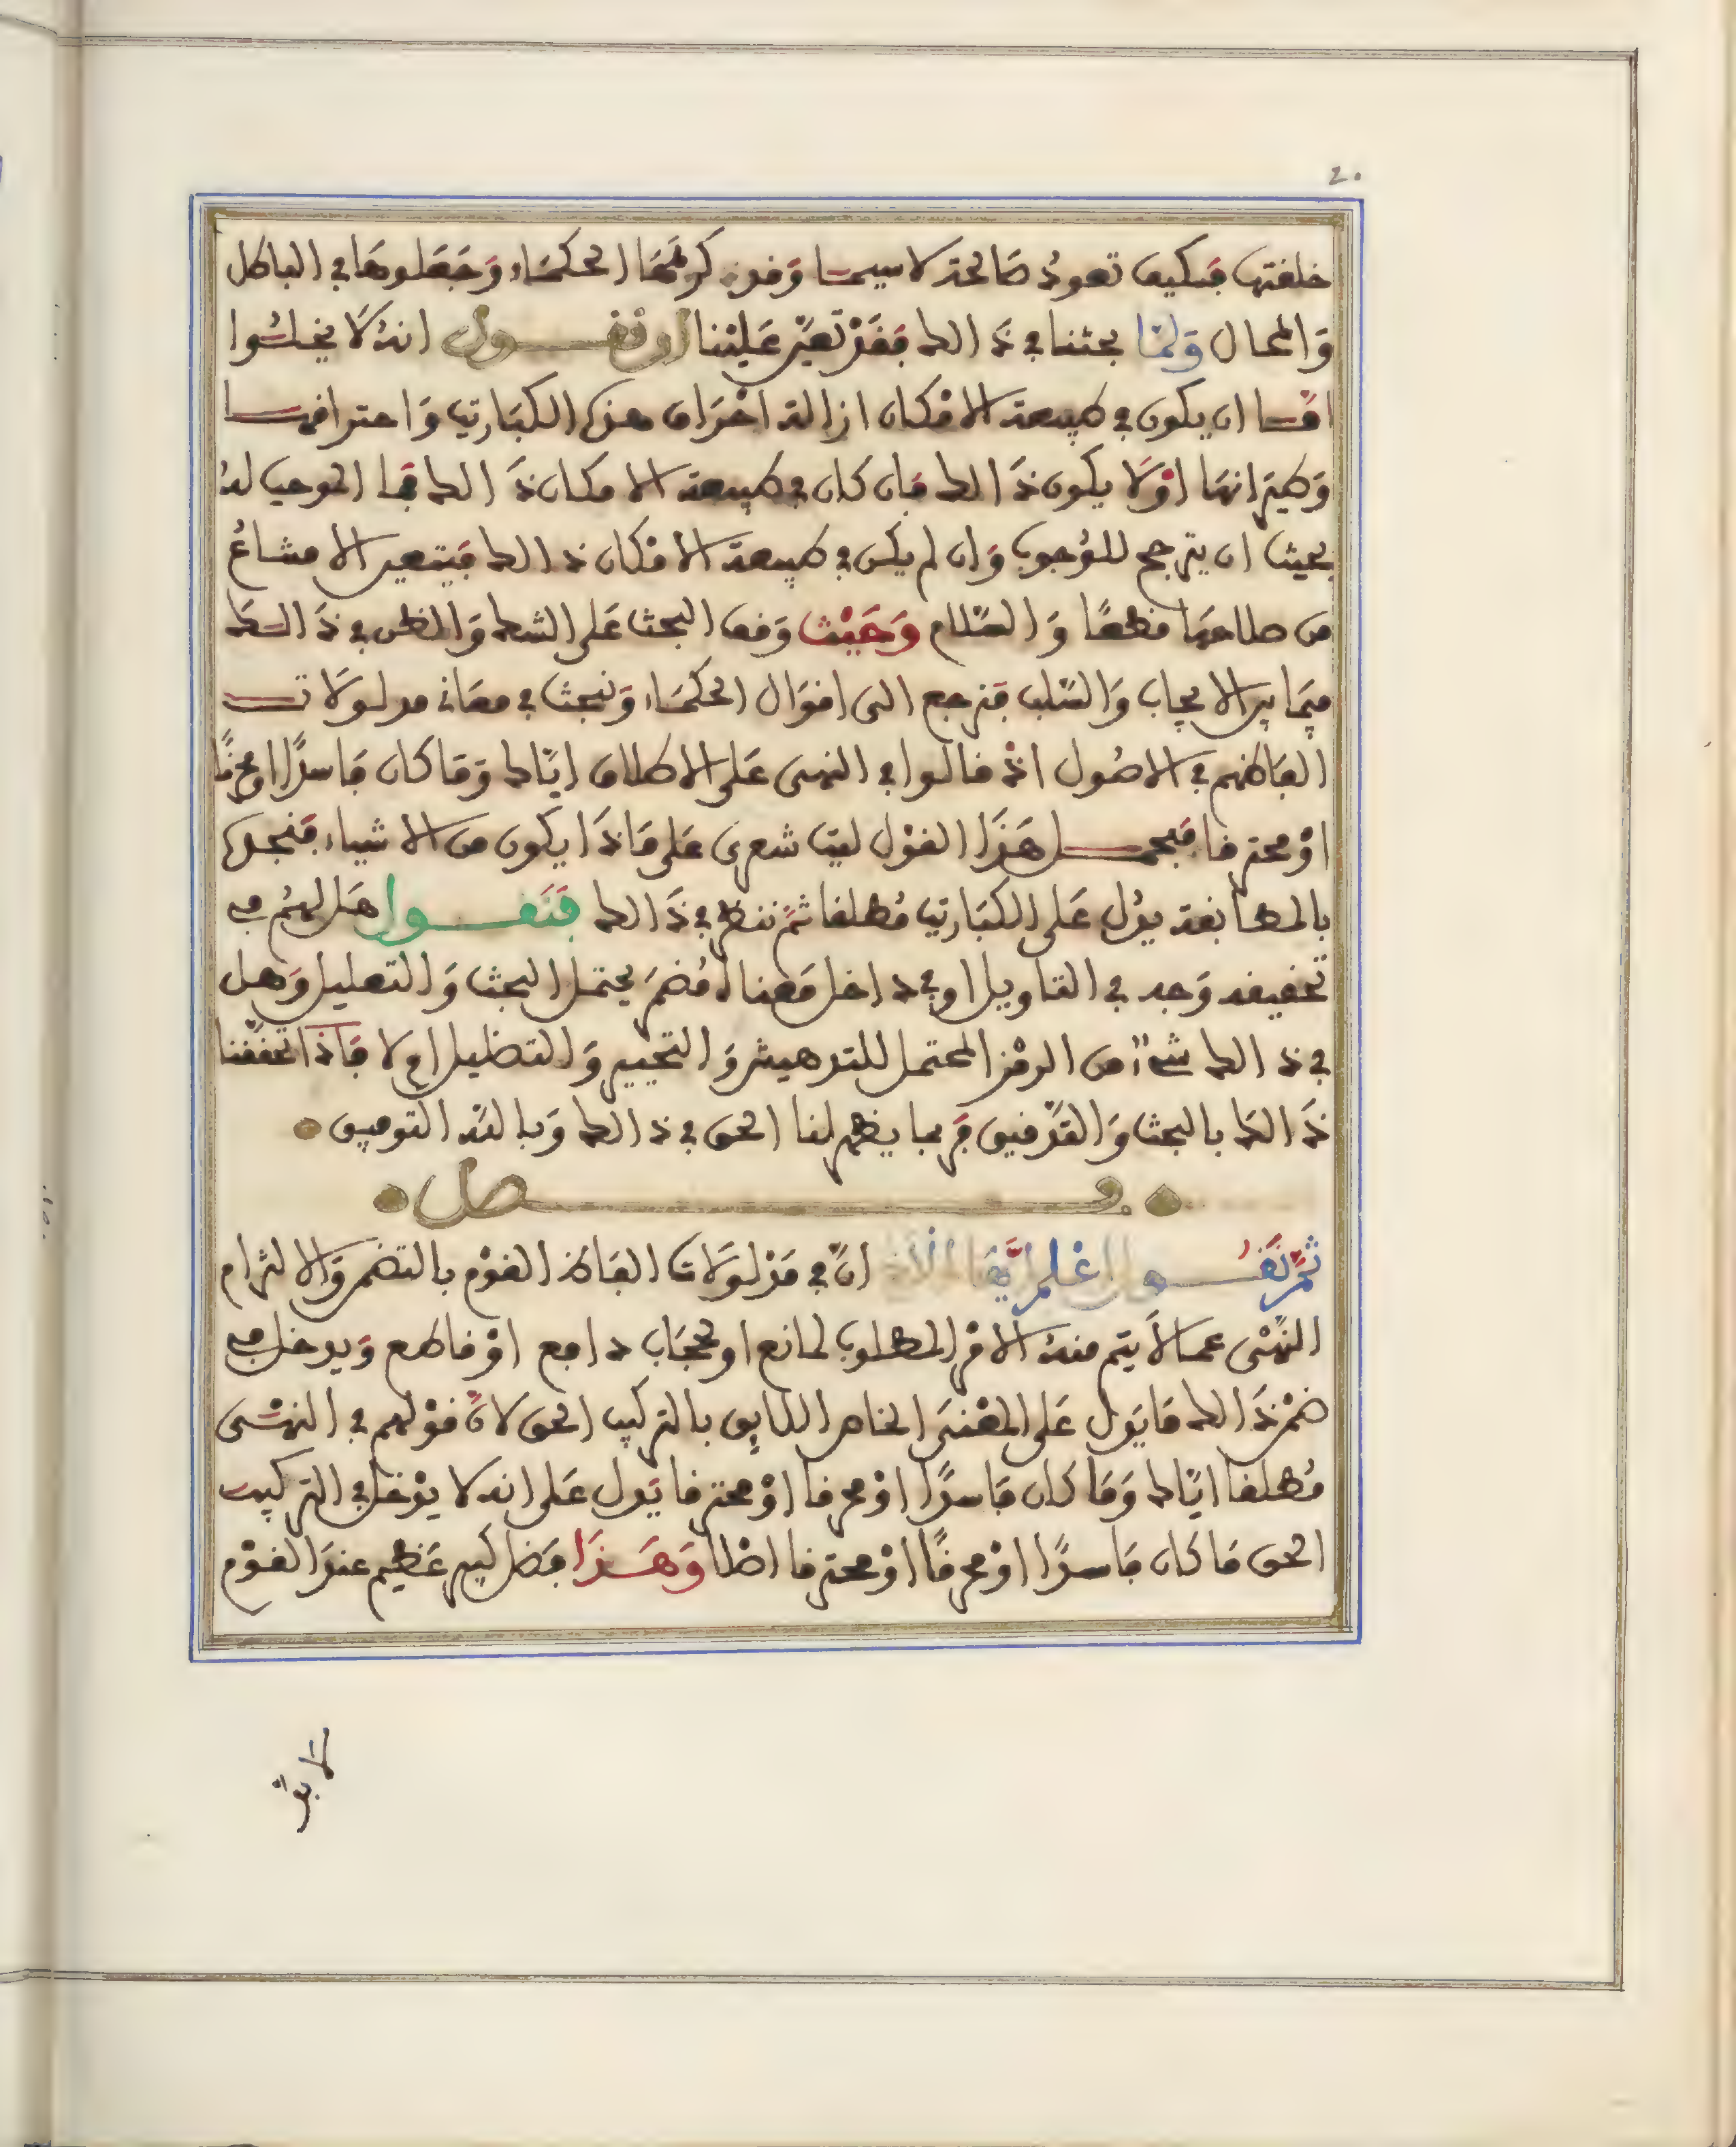 20
خلفتها فكيف تعود صالحة لا سيما وقد كرهها الحكماء وجعلوها في الباطل
والمحال ولما بحثنا في ذالك فقد تعين علينا ان نقول انه لا يخلوا
اما ان يكون في طبيعة الامكان ازالة احراق هذه الكباريت واحتراقها
وطيرانها اولا يكون ذالك فان كان في طبيعة الامكان ذالك فما الموجب له
بحيث ان يترجح للوجوب وان لم يكن في طبيعة الامكان ذالك فيتعين الامتناع
من صلاحها قطعا والسلام وحيث وقف البحث على الشك والظن في ذالك
فيما بين الايجاب والسلب فنرجع الى اقوال الحكماء ونبحث في معاني مدلولات
الفاظهم في الاصول اذ قالوا في النهى على الاطلاق اياك وما كان فاسدا او محرقا
او محترقا فيحمل هذا القول ليت شعرى على ماذا يكون من الاشياء فنجده
بالمطابقة يدل على الكباريت مطلقا ثم ننظر في ذالك فنقول هل لهم فيه
تخفيف وجد في التاويل او في داخل معناه مضمر يحتمل البحث والتعليل وهل
في ذالك شيء من الرمز المحتمل للتدهيش والتحيير والتضليل ام لا فاذا تحققنا
ذالك بالبحث والتدقيق فربما يظهر لنا الحق في ذالك وبالله التوفيق
فصل
ثم نقول اعلم ايها الاخ ان في مدلولات الفاظ القوم بالتضمن والالتزام
النهى عما لا يتم منه الامر المطلوب لمانع او لحجاب دافع او قاطع ويدخل فيه
ضمن ذالك ما يدل على المعنى الخاص اللايق بالتركيب الحق لان قولهم في النهى
مطلقا اياك وما كان فاسدا او محرقا او محترقا يدل على انه لا يدخل في التركيب
الحق ما كان فاسدا او محرقا او محترقا اصلا وهذا فصل كبير عظيم عند القوم
لانه